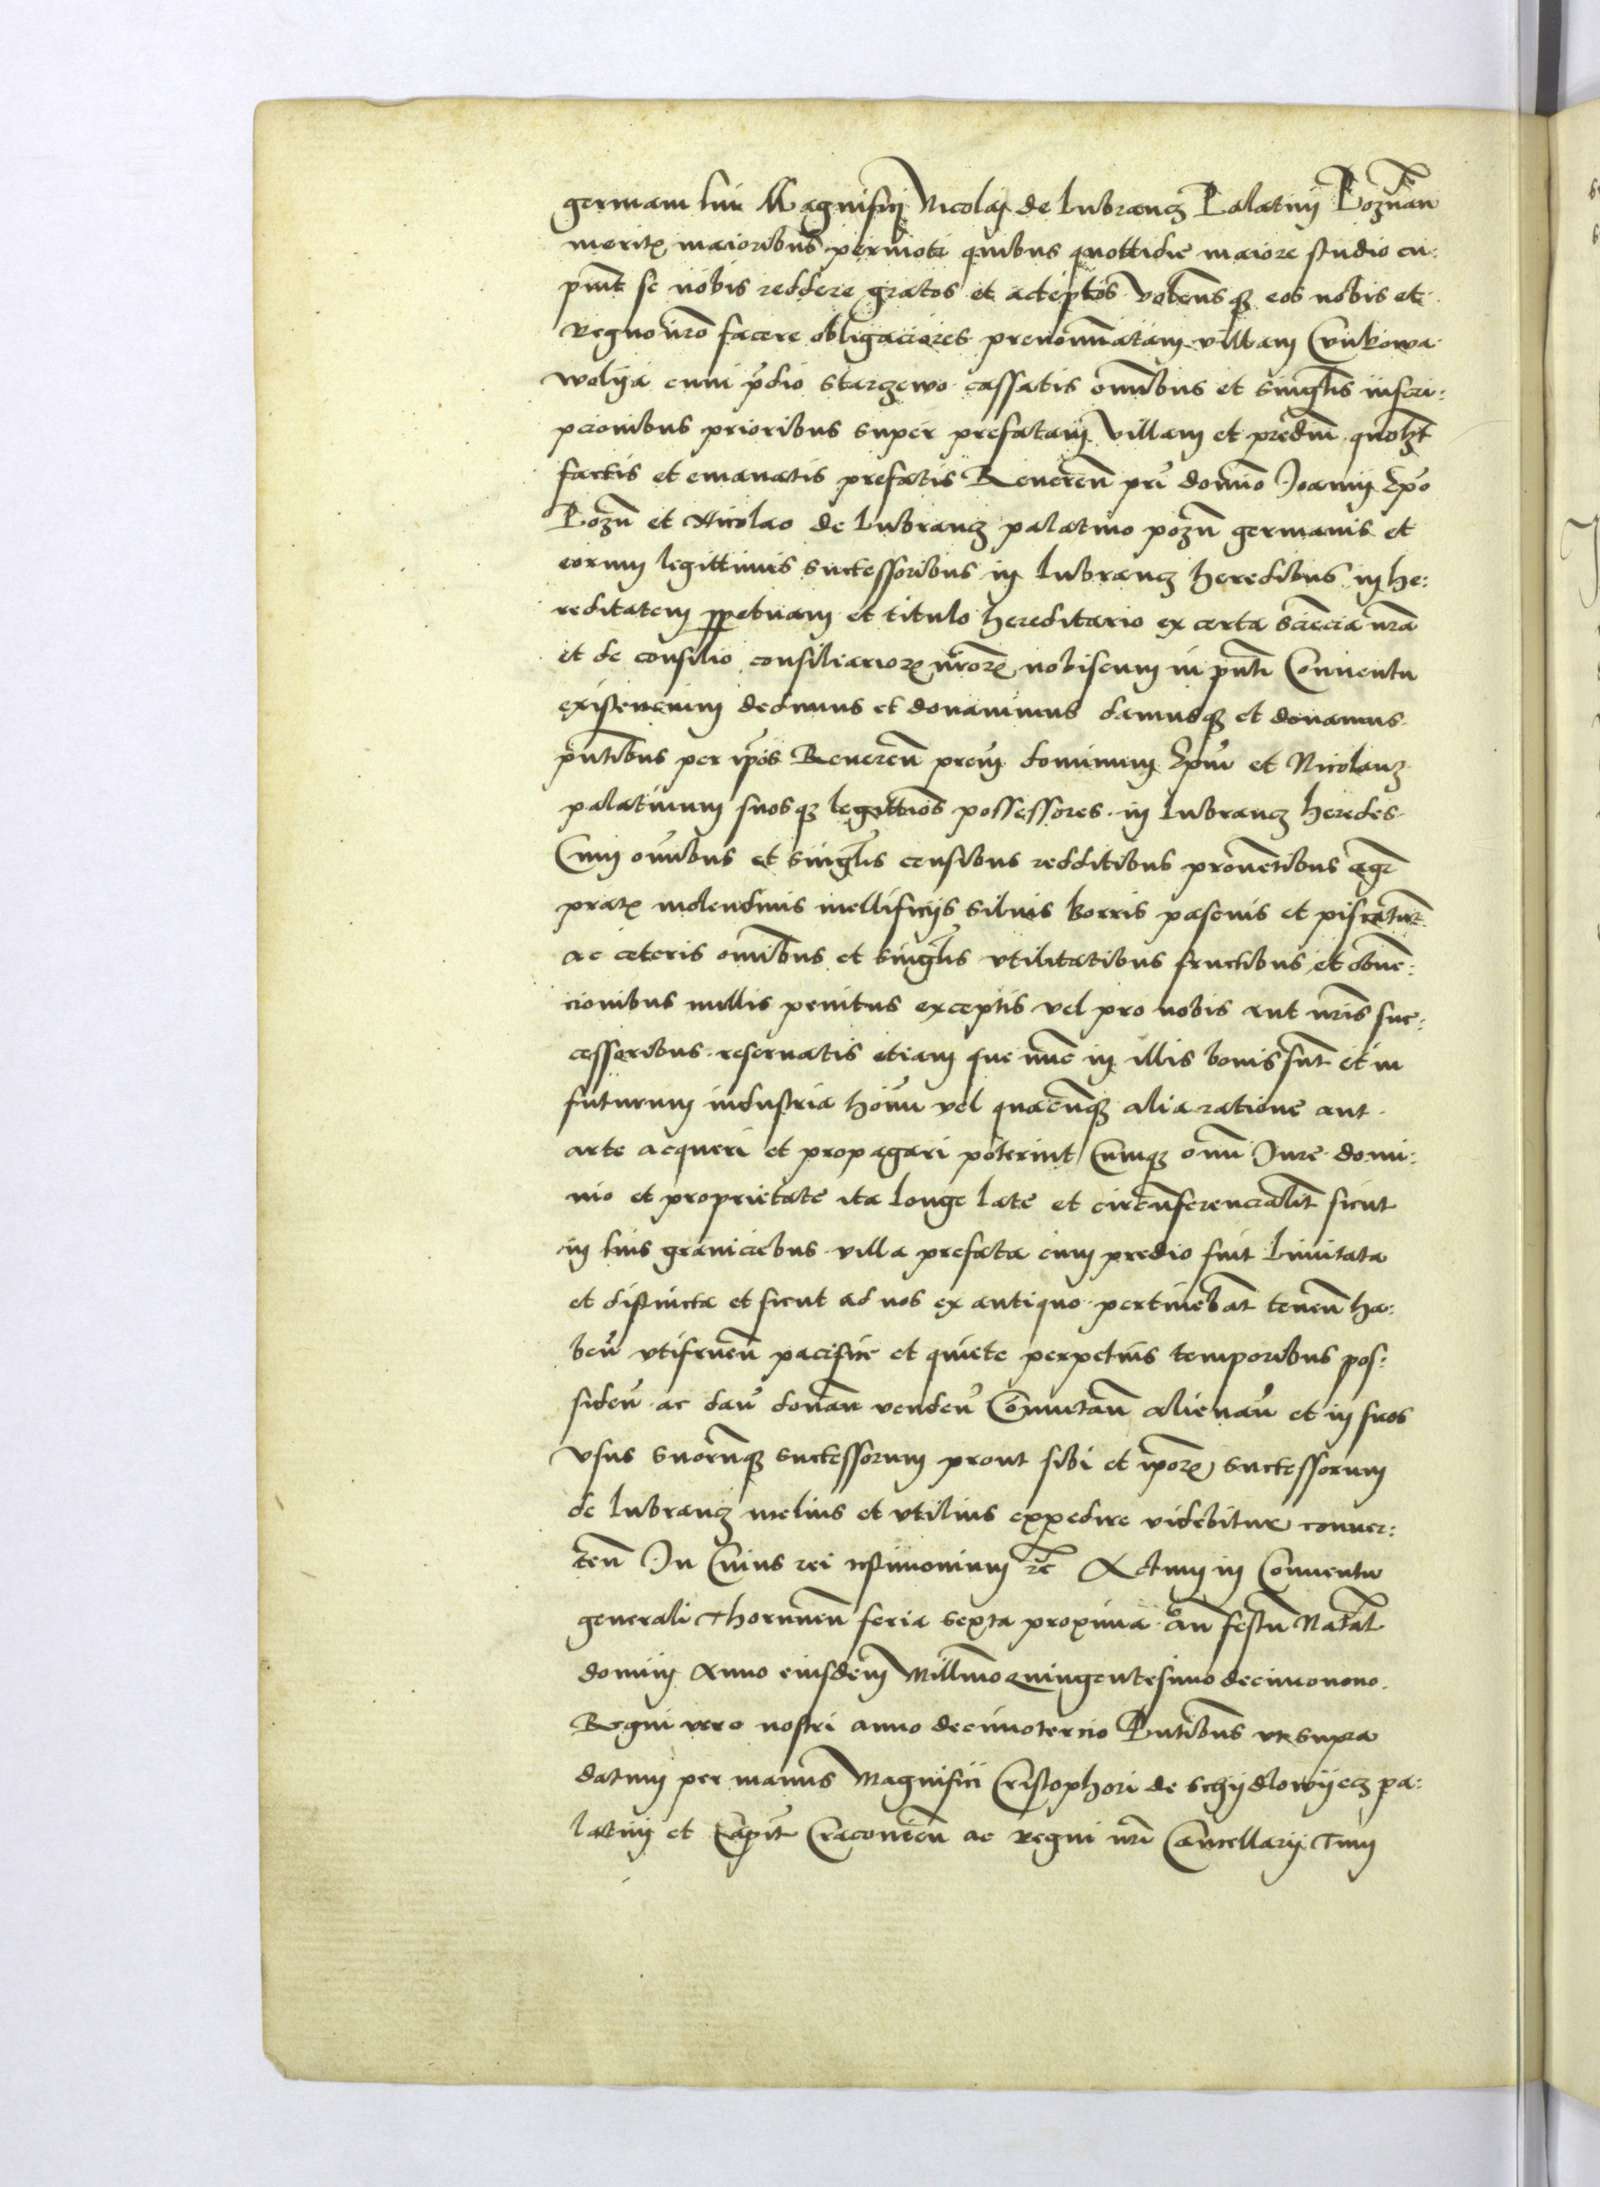 germani sui Magnifici Nicolai de Lubrancz Palatini Poznan
meritis maioribus permoti quibus quottidie maiore studio cu:
piunt se nobis reddere gratos et acceptos volentesque eos nobis et
Regno nro facere obligaciores prenominatam villam
wolija cum predio Starzewo cassatis omnibus et singulis inscri:
pcionibus prioribus super prefatam villam et predium quolzt
factis et emanatis prefatis Reveren pri domino Joanni Epo
Pozn et Nicolao de Lubrancz palatino pozn germanis et
eorum legittimis successoribus in Lubrancz heredibus in he:
reditatem perpetuam et titulo hereditario ex certa sciencia nra
et de consilio consiliariorum nrorum nobiscum in pnti Conventu
existencium dedimus et donavimus damusque et donamus
pntibus per ipos Reveren prem dominum Epum et Nicolaum
palatinum suosque legittimos possessores in Lubrancz heredes
Cum omnibus et singulis censibus redditibus proventibus agris
pratis molendinis mellificijs silvis borris pascuis et piscatur
ac ceteris omnibus et singulis utilitatibus fructibus et obven:
cionibus nullis penitus exceptis vel pro nobis aut nris suc:
cessoribus reservatis etiam que nunc in illis bonis sunt et in
futurum industria hominum vel quacunque alia ratione aut
arte acqueri et propagari poterint Cumque omni Jure domi:
nio et proprietate ita longe late et circumferencialit sicut
in suis granicebus villa prefata cum predio fuit limitata
et distincta et sicut ad nos ex antiquo pertinebat tenen ha:
ben utifruen pacifice et quiete perpetuis temporibus pos:
siden ac dan donan venden Comutan alienan et in suos
usus suorumque successorum prout sibi et iporum successorum
de Lubrancz melius et utilius expedire videbitur conver:
ten In Cuius rei testimonium etc Actum in Conventu
generali Thorunen feria sexta proxima an festum Natal
domini Anno eiusdem Millmo Quingentesimo decimonono
Regni vero nostri anno decimotercio Pntibus ut supra
datum per manus Magnifici Cristophori de Schijdlowijecz pa:
latini et Capit Cracovien ac regni nri Cancellarij Tum